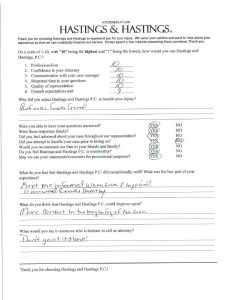 ATTORNEYS AT LAW
HASTINGS & HASTINGS.
Thank you for choosing Hastings and Hastings to represent you for your injury. We value your opinion and want to hear about your
experience so that we can constantly improve our service. Please spend a few minutes answering these questions. Thank you.
On a scale of 1-10, with "10" being the highest and "1" being the lowest, how would you rate Hastings and
Hastings, P.C.?
1. Professionalism 10
2. Confidence in your Attorney 10
3. Communication with your case manager 10
4. Response time to your questions 10
5. Quality of representation 10
6. Overall expectations met
Why did you select Hastings and Hastings P.C. to handle your injury?
Referral from friend
Were you able to have your questions answered? YES NO
Were those responses timely? YES NO
Did you feel informed about your case throughout our representation? YES NO
Did you attempt to handle your case prior to hiring us? YES NO
Would you recommend our firm to your friends and family? YES NO
Did you feel that Hastings & Hastings P.C. is trustworthy? YES NO
May we use your statements/comments for promotional purposes? YES NO
What do you feel that Hastings and Hastings P.C. did exceptionally well? What was the best part of your
experience?
Kept me informed when
What do you think that Hastings and Hastings P.C. could improve upon?
More contact in the beginning of the case.
What would you say to someone who is hesitant to call an attorney?
Don't go it alone!
Thank you for choosing Hastings and Hastings P.C.!